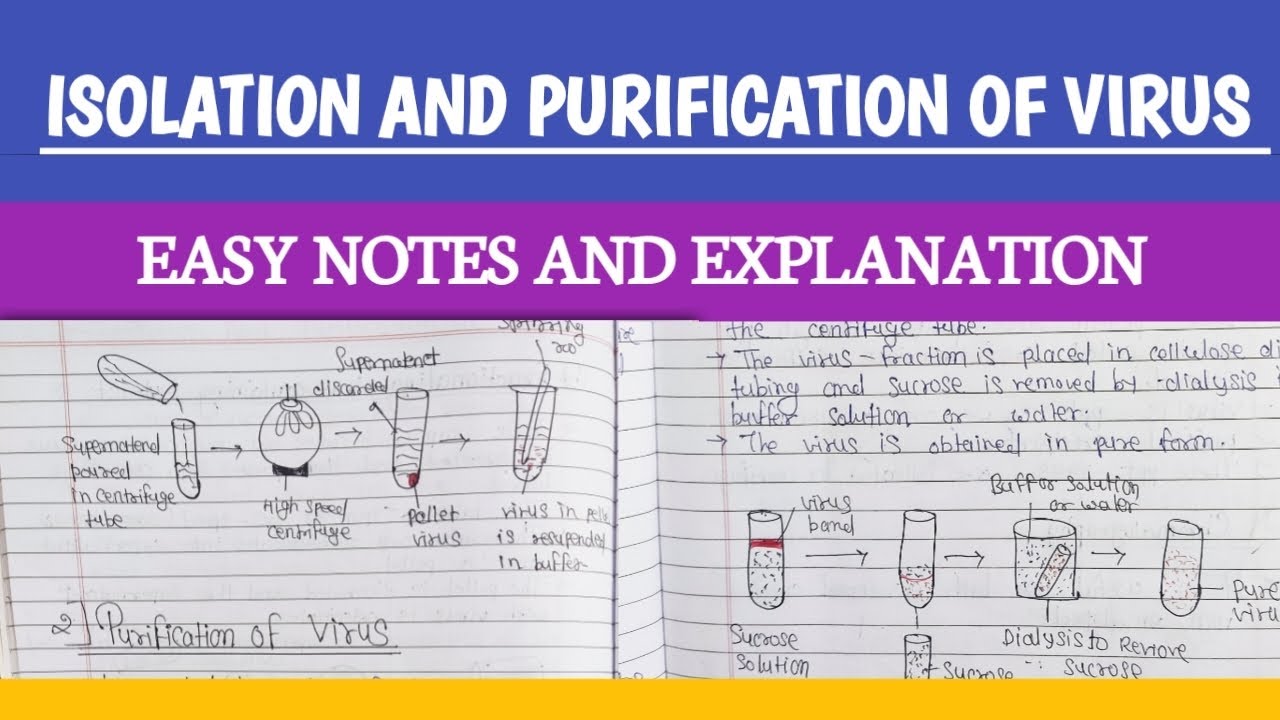 ISOLATION AND PURIFICATION OF VIRUS
EASY NOTES AND EXPLANATION
Supernatend
poured
in centrifuge
tube
High speed
centrifuge
Supernatent
discarded
pellet
virus
virus in
is resupended
in buffer
2] Purification of Virus
the centrifuge tube.
→ The virus-fraction is placed in cellulose di
tubing and sucrose is removed by dialysis
buffer solution or water.
→ The virus is obtained in pure form.
virus
band
Buffor solution
or water
Pure
viru
Sucrose
solution
Sucrose
Dialysis to Remove
sucrose